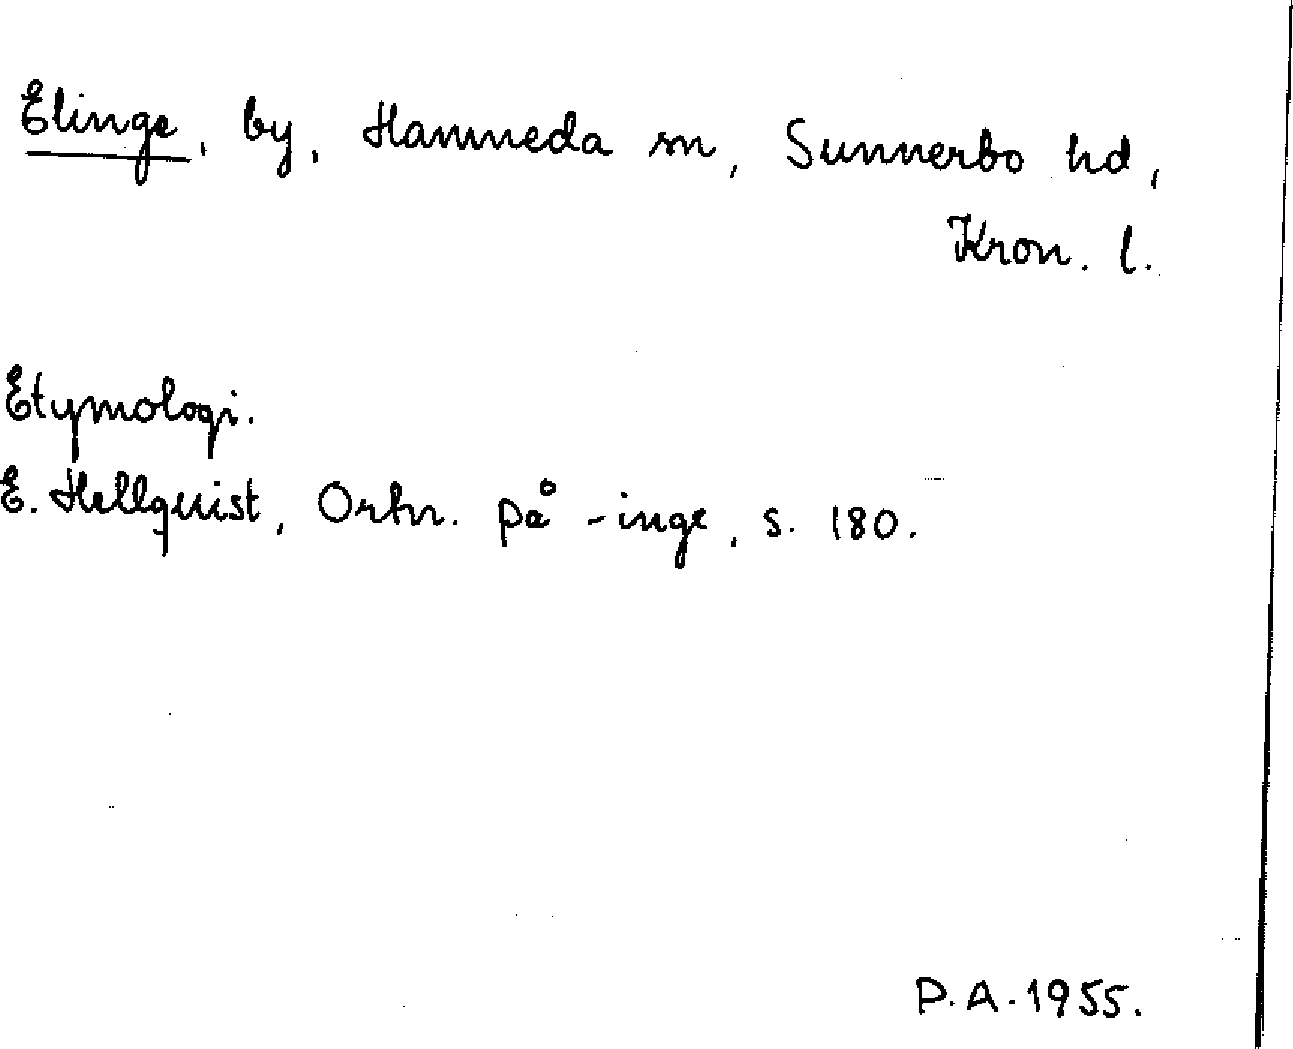 Elinge, by, Hamneda sn, Sunnerbo hd,
Kron. l.
Etymologi.
E. Hellquist, Ortn. på -inge, s. 180.
P.A. 1955.